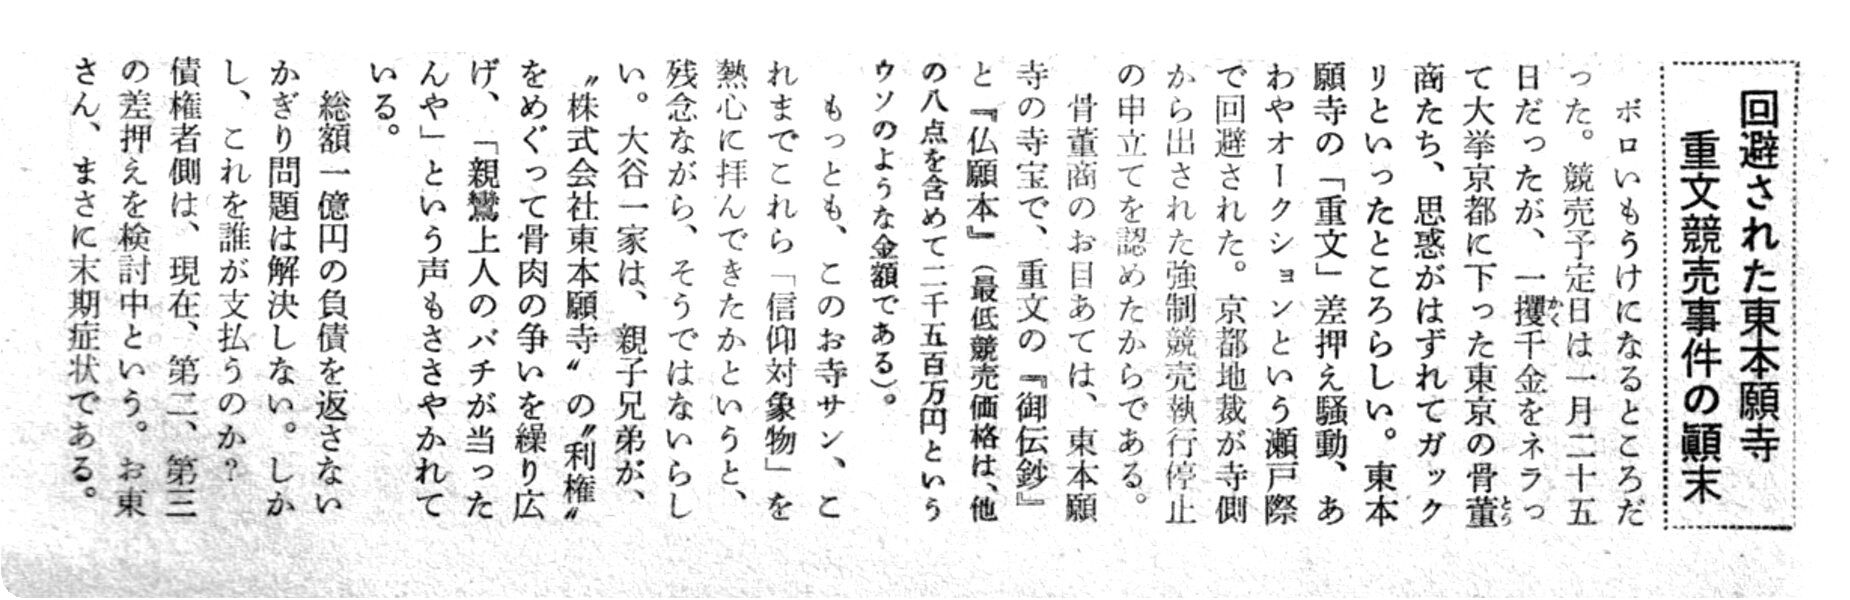 回避された東本願寺
重文競売事件の顚末
ボロいもうけになるところだ
った。競売予定日は一月二十五
日だったが、一攫千金をネラっ
て大挙京都に下った東京の骨董
商たち、思惑がはずれてガック
リといったところらしい。東本
願寺の「重文」差押え騒動、あ
わやオークションという瀬戸際
で回避された。京都地裁が寺側
から出された強制競売執行停止
の申立てを認めたからである。
骨董商のお目あては、東本願
寺の寺宝で、重文の『御伝鈔』
と『仏願本』（最低競売価格は、他
の八点を含めて二千五百万円という
ウソのような金額である）。
もっとも、このお寺サン、こ
れまでこれら「信仰対象物」を
熱心に拝んできたかというと、
残念ながら、そうではないらし
い。大谷一家は、親子兄弟が、
〝株式会社東本願寺〟の〝利権〟
をめぐって骨肉の争いを繰り広
げ、「親鸞上人のバチが当った
んや」という声もささやかれて
いる。
総額一億円の負債を返さない
かぎり問題は解決しない。しか
し、これを誰が支払うのか？
債権者側は、現在、第二、第三
の差押えを検討中という。お東
さん、まさに末期症状である。